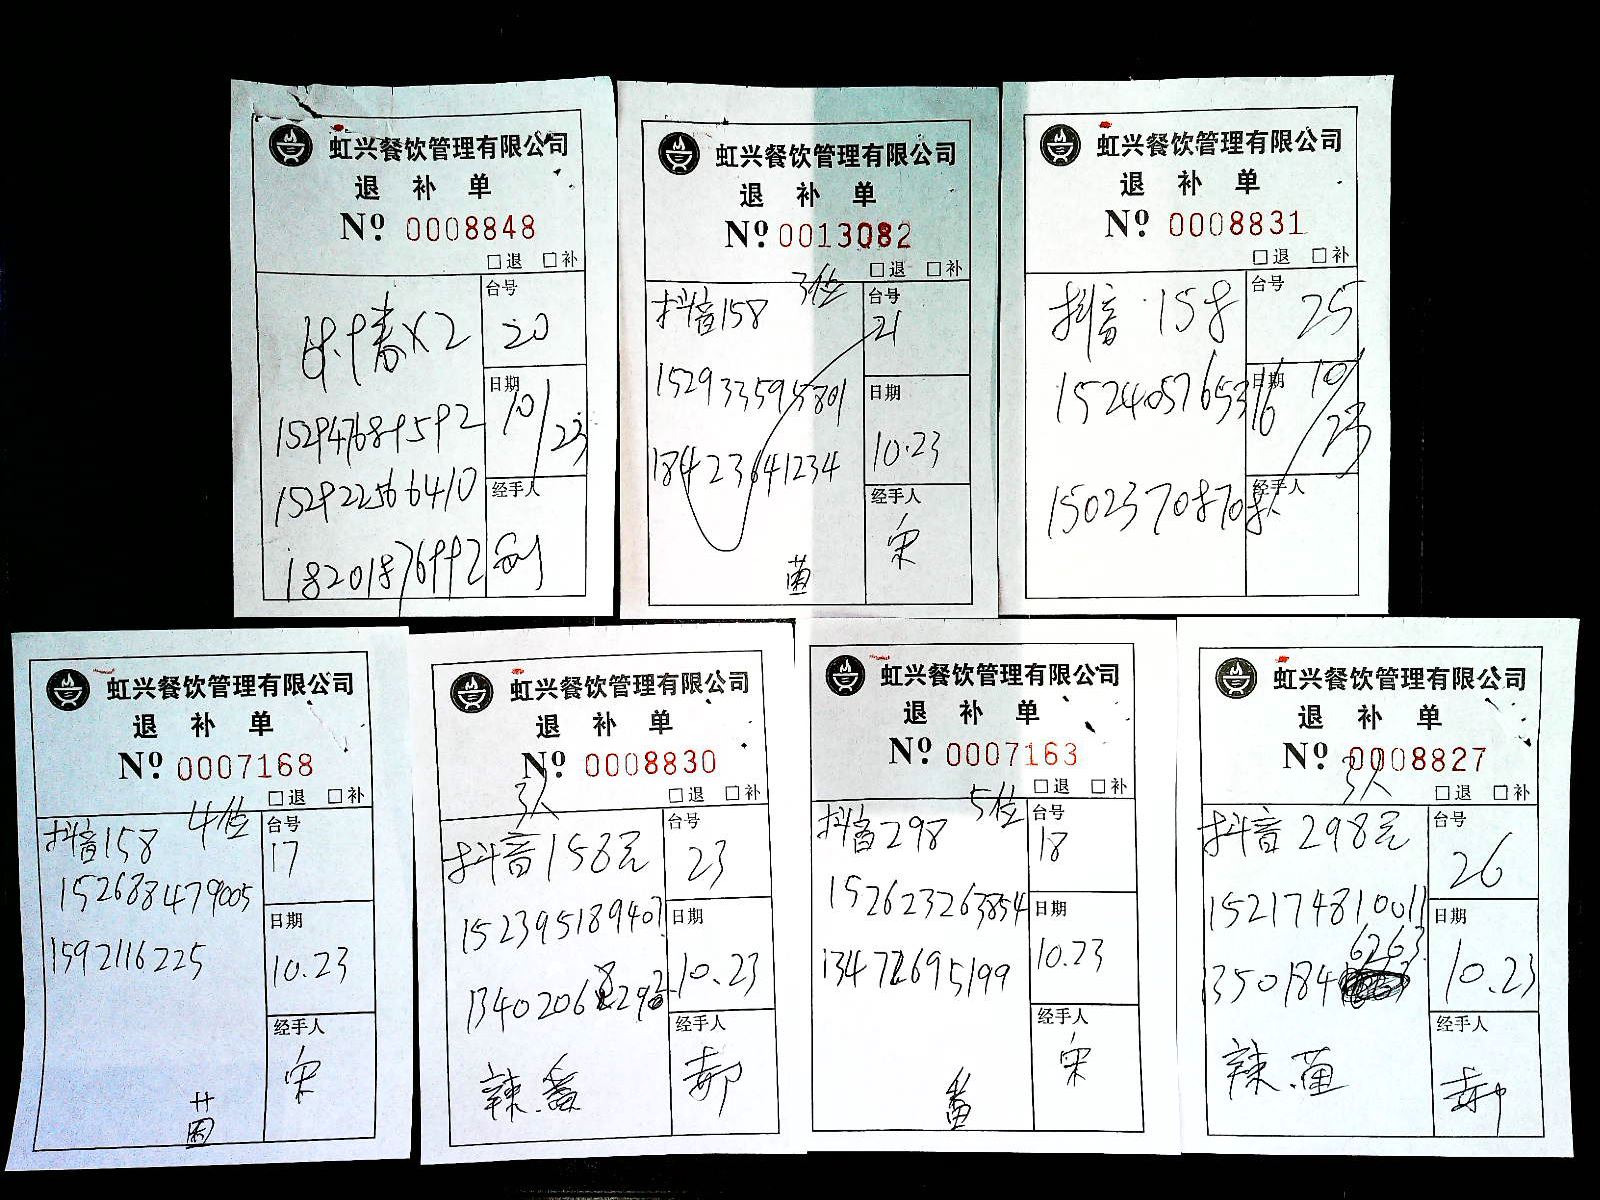 虹兴餐饮管理有限公司
退 补 单
Nº 0008848
□退 □补
台号
20
152947689592
日期
10/23
152922566410
经手人
18201876992
虹兴餐饮管理有限公司
退 补 单
Nº 0013082
□退 □补
抖音158 3位
台号
21
152933595801
日期
10.23
18423641234
经手人
宋
菌
虹兴餐饮管理有限公司
退 补 单
Nº 0008831
□退 □补
抖音 158
台号
25
日期
10/23
经手人
虹兴餐饮管理有限公司
退 补 单
Nº 0007168
□退 □补
抖音158 4位
台号
17
152688479005
日期
10.23
1592116225
经手人
宋
菌
虹兴餐饮管理有限公司
退 补 单
Nº 0008830
□退 □补
3人
抖音158元
台号
23
152395189407
日期
10.23
经手人
郝
辣.番
虹兴餐饮管理有限公司
退 补 单
Nº 0007163
□退 □补
抖音298 5位
台号
18
152623263854
日期
10.23
经手人
宋
番
虹兴餐饮管理有限公司
退 补 单
Nº 0008827
□退 □补
3人
抖音298元
台号
26
152174810011
日期
6263
1350184
10.23
经手人
郝
辣.菌